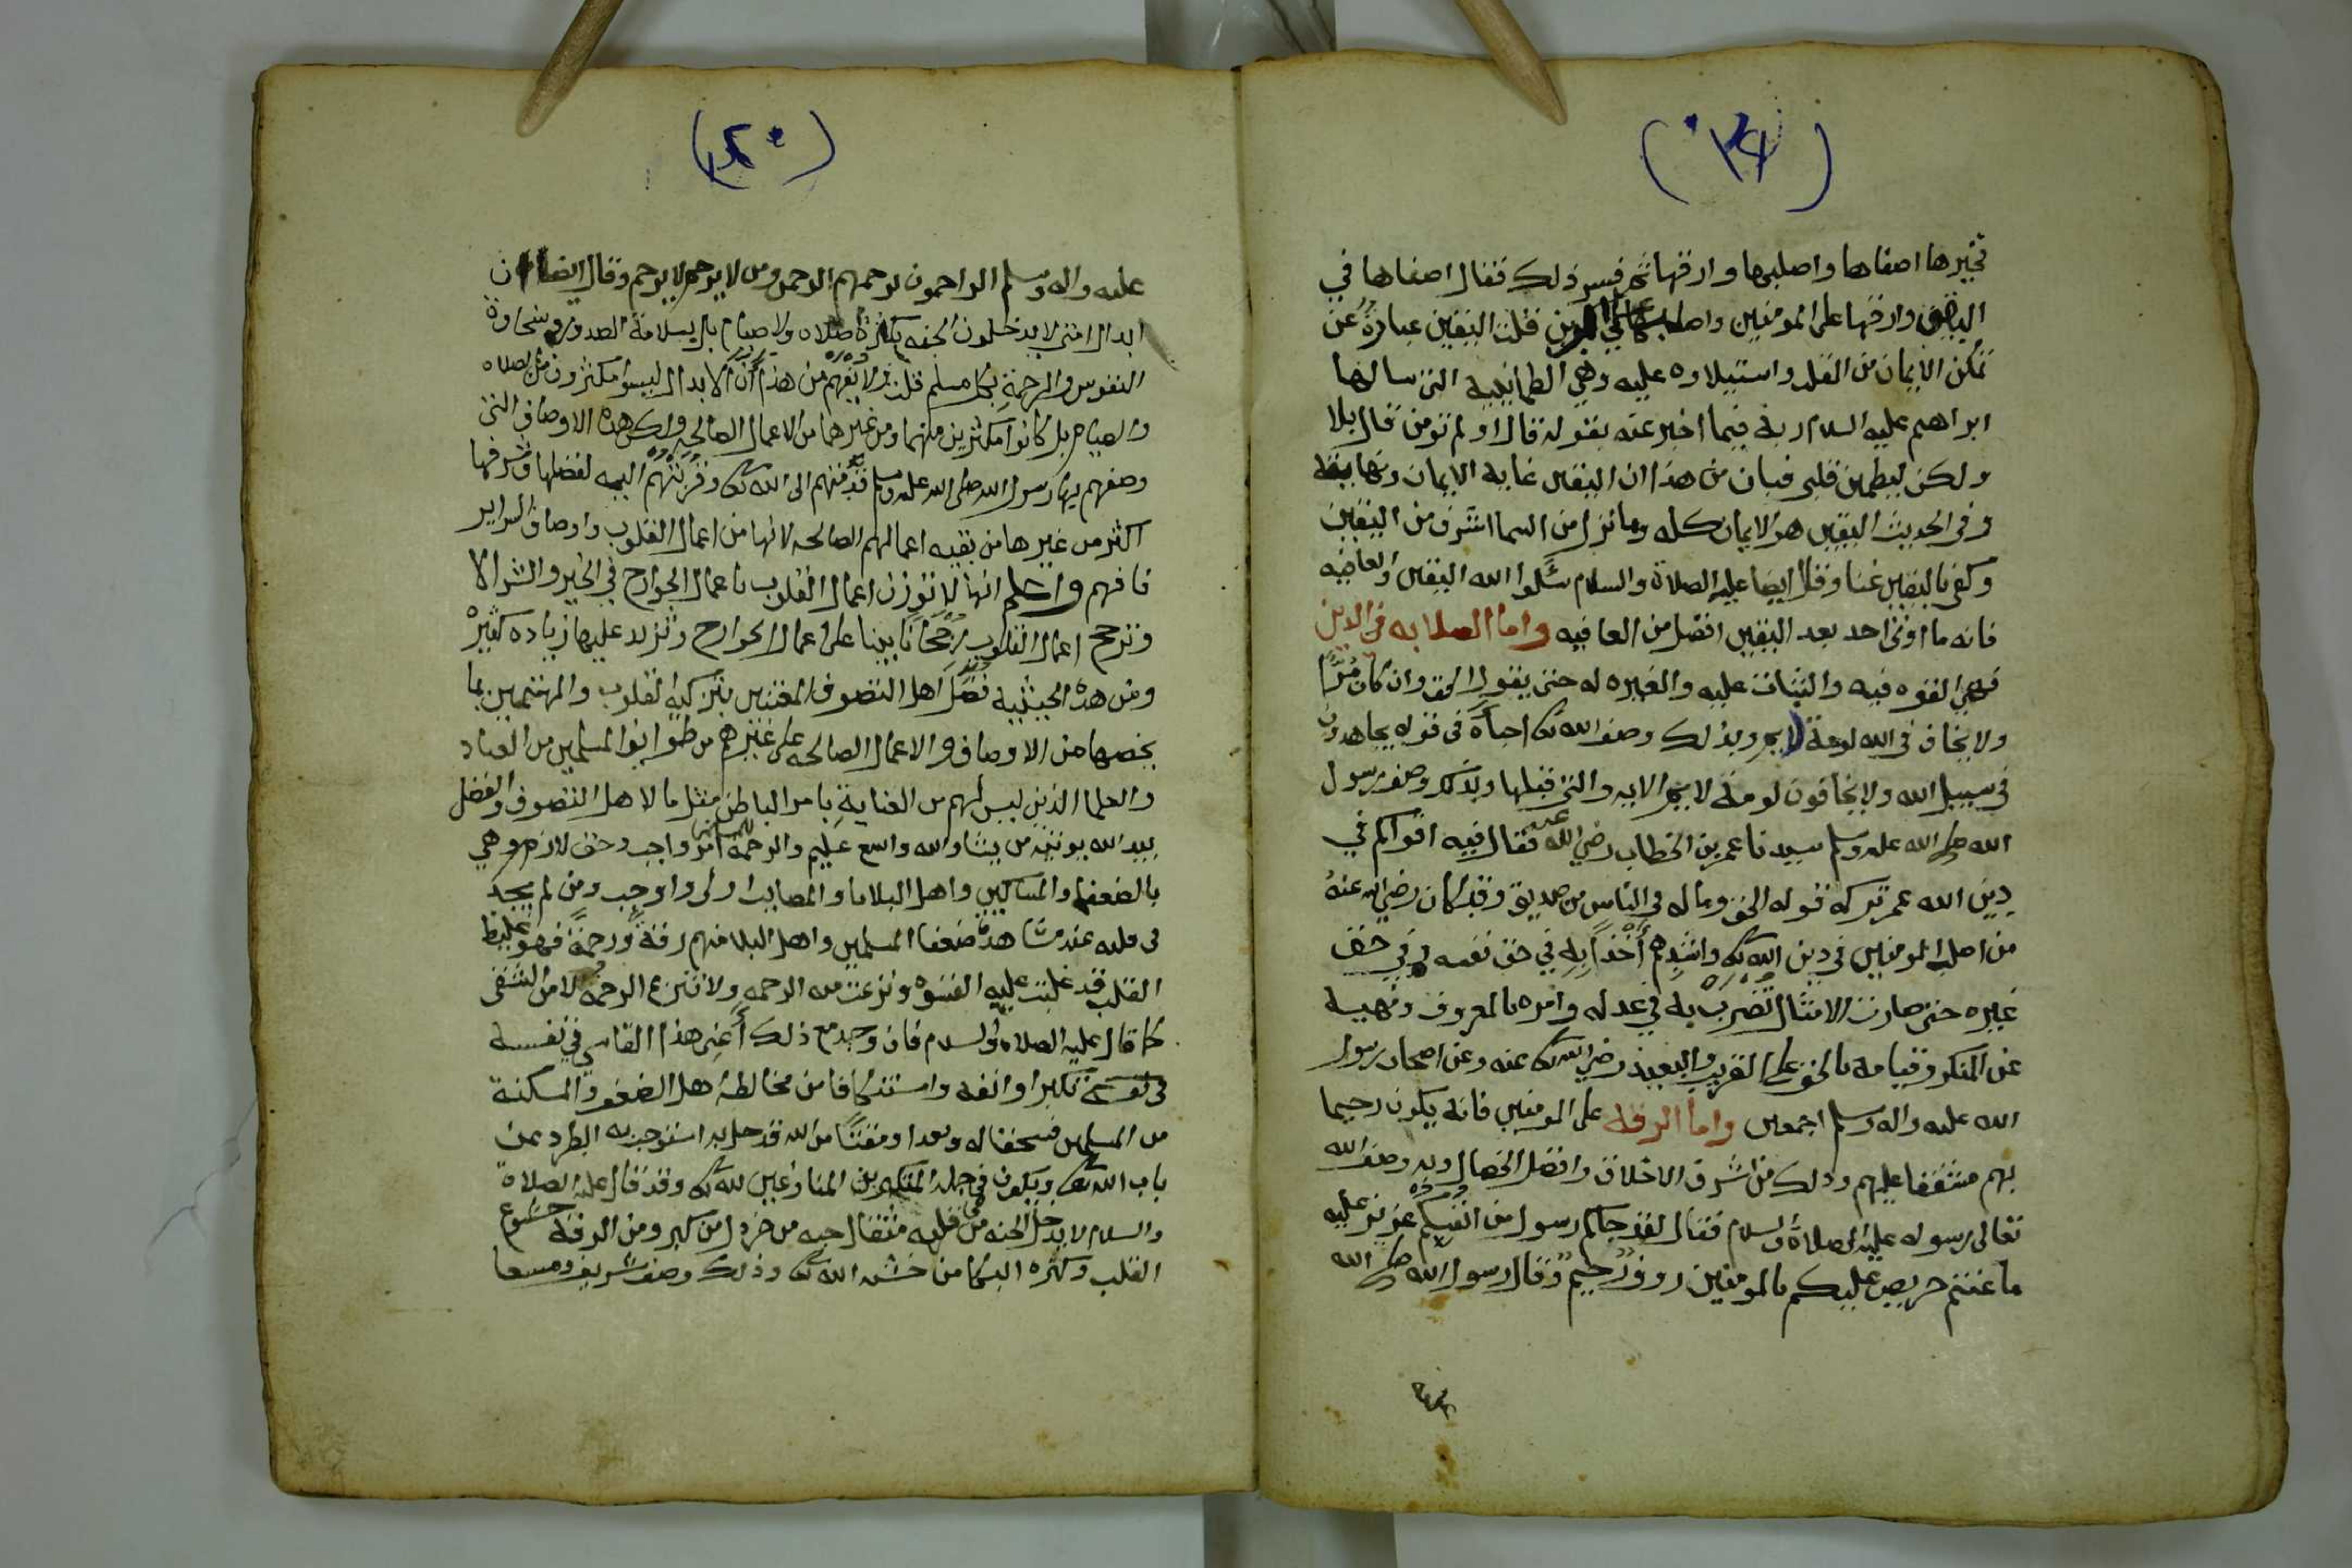 فخيرها اصفاها واصلبها وارقها ثم فسر ذلك فقال اصفاها في
اليقين وارقها على المومنين واصلبها في الدين قلت اليقين عبارة عن
تمكن الايمان من القلب واستيلاوه عليه وهي الطمانينة التى سالها
ابراهيم عليه السلام ربه فيما اخبر عنه بقوله قال اولم تومن قال بلا
ولكن ليطمين قلبي فبان من هذا ان اليقين غاية الايمان ونهايته
وفي الحديث اليقين هو الايمان كله وما نزل من السما اشرف من اليقين
وكفى باليقين غنا وقال ايضا عليه الصلاة والسلام سَلوا الله اليقين والعافيه
فانه ما اوتى احد بعد اليقين افضل من العافيه واما الصلابه في الدين
فهي القوه فيه والثبات عليه والغيره له حتى يقول الحق وان كان مُرًّا
ولا يخاف في الله لومة لايم وبذلك وصف الله تعالى احباه في قوله يجاهدون
في سبيل الله ولا يخافون لومة لايم الايه والتى قبلها وبذلك وصف رسول
الله صلى الله عليه وسلم سيدنا عمر بن الخطاب رضي الله عنه فقال فيه اقواكم في
دين الله عمر تركه قوله الحق وماله في الناس من صديق وقد كان رضي الله عنه
من اصلب المومنين في دين الله تعالى واشدهم أَخْذاً بِهِ في حق نفسه وفي حق
غيره حتى صارت الامثال تُضرَب به في عدله وامره بالمعروف ونهيه
عن المنكر وقيامه بالحق على القريب والبعيد رضي الله تعالى عنه وعن اصحاب رسول
الله عليه واله وسلم اجمعين واما الرقه على المومنين فانه يكون رحيما
بهم مشفقا عليهم وذلك من اشرف الاخلاق وافضل الخصال وبه وصف الله
تعالى رسوله عليه الصلاة والسلام فقال لقد جاكم رسول من انفسكم عزيز عليه
ما عنتم حريص عليكم بالمومنين روف رحيم وقال رسول الله صلى الله
عليه واله وسلم الراحمون يرحمهم الرحمن ومن لا يرحم لا يرحم وقال ايضا ان
ابدال امتى لا يدخلون الجنه بكثرة صلاه ولا صيام بل بسلامة الصدور وسخاوة
النفوس والرحمة بكل مسلم قلت ولا تفهم من هذا أن الابدال ليسوا مكثرون من الصلاه
والصيام بل كانوا مكثرين منهما ومن غيرهما من الاعمال الصالحه ولكن هذه الاوصاف التى
وصفهم بها رسول الله صلى الله عليه وسلم قدمتهم الى الله تعالى وقربتهم اليه لفضلها وشرفها
اكثر من غيرها من بقيه اعمالهم الصالحه لانها من اعمال القلوب واوصاف السراير
فافهم واعلم انها لا توزن اعمال القلوب باعمال الجوارح في الخير والشر الا
وترجح اعمال القلوب رُجحاناً بينا على اعمال الجوارح وتزيد عليها زياده كثيره
ومن هذه الحيثية فُضّل اهل التصوف المعتنين بتزكية القلوب والمهتمين بما
يخصها من الاوصاف والاعمال الصالحه على غيرهم من طوايف المسلمين من العباد
والعلما الذين ليس لهم من العناية بامر الباطن مثل ما لاهل التصوف والفضل
بيد الله يوتيه من يشا والله واسع عليم والرحمه للمسلمين امر واجب وحق لازم وهي
بالضعفا والمساكين واهل البلايا والمصايب اولى واوجب ومن لم يجد
في قلبه عند مشاهدة ضعفا المسلمين واهل البلا منهم رقة ورحمة فهو غليظ
القلب قد غلبت عليه القسوه ونزعت منه الرحمه ولا تنزع الرحمه الا من شقى
كما قال عليه الصلاه والسلام فان وجد مع ذلك أَعنِى هذا القاسي في نفسه
في نفسه تكبرا وانفه واستنكافا من مخالطة اهل الضعف والمسكنة
من المسلمين فسحقا له وبعدا ومقتاً من الله قد حل به استوجب به الطرد عن
باب الله تعالى ويكون في جملة المتكبرين المنازعين لله تعالى وقد قال عليه الصلاة
والسلام لا يدخل الجنه من في قلبه مثقال حبه من خردل من كبر ومن الرقة خشوع
القلب وكثره البكا من خشية الله تعالى وذلك وصف شريف ومسعا